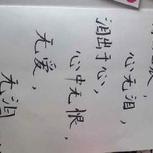 心无泪，
泪出于心，
心中无恨，
无爱，
无泪